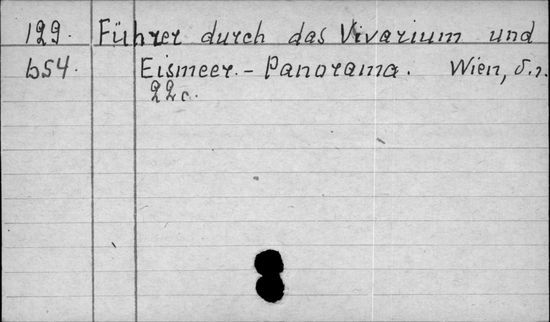 129. Führer durch das Vivarium und
b54. Eismeer.- Panorama. Wien, o.J.
22c.